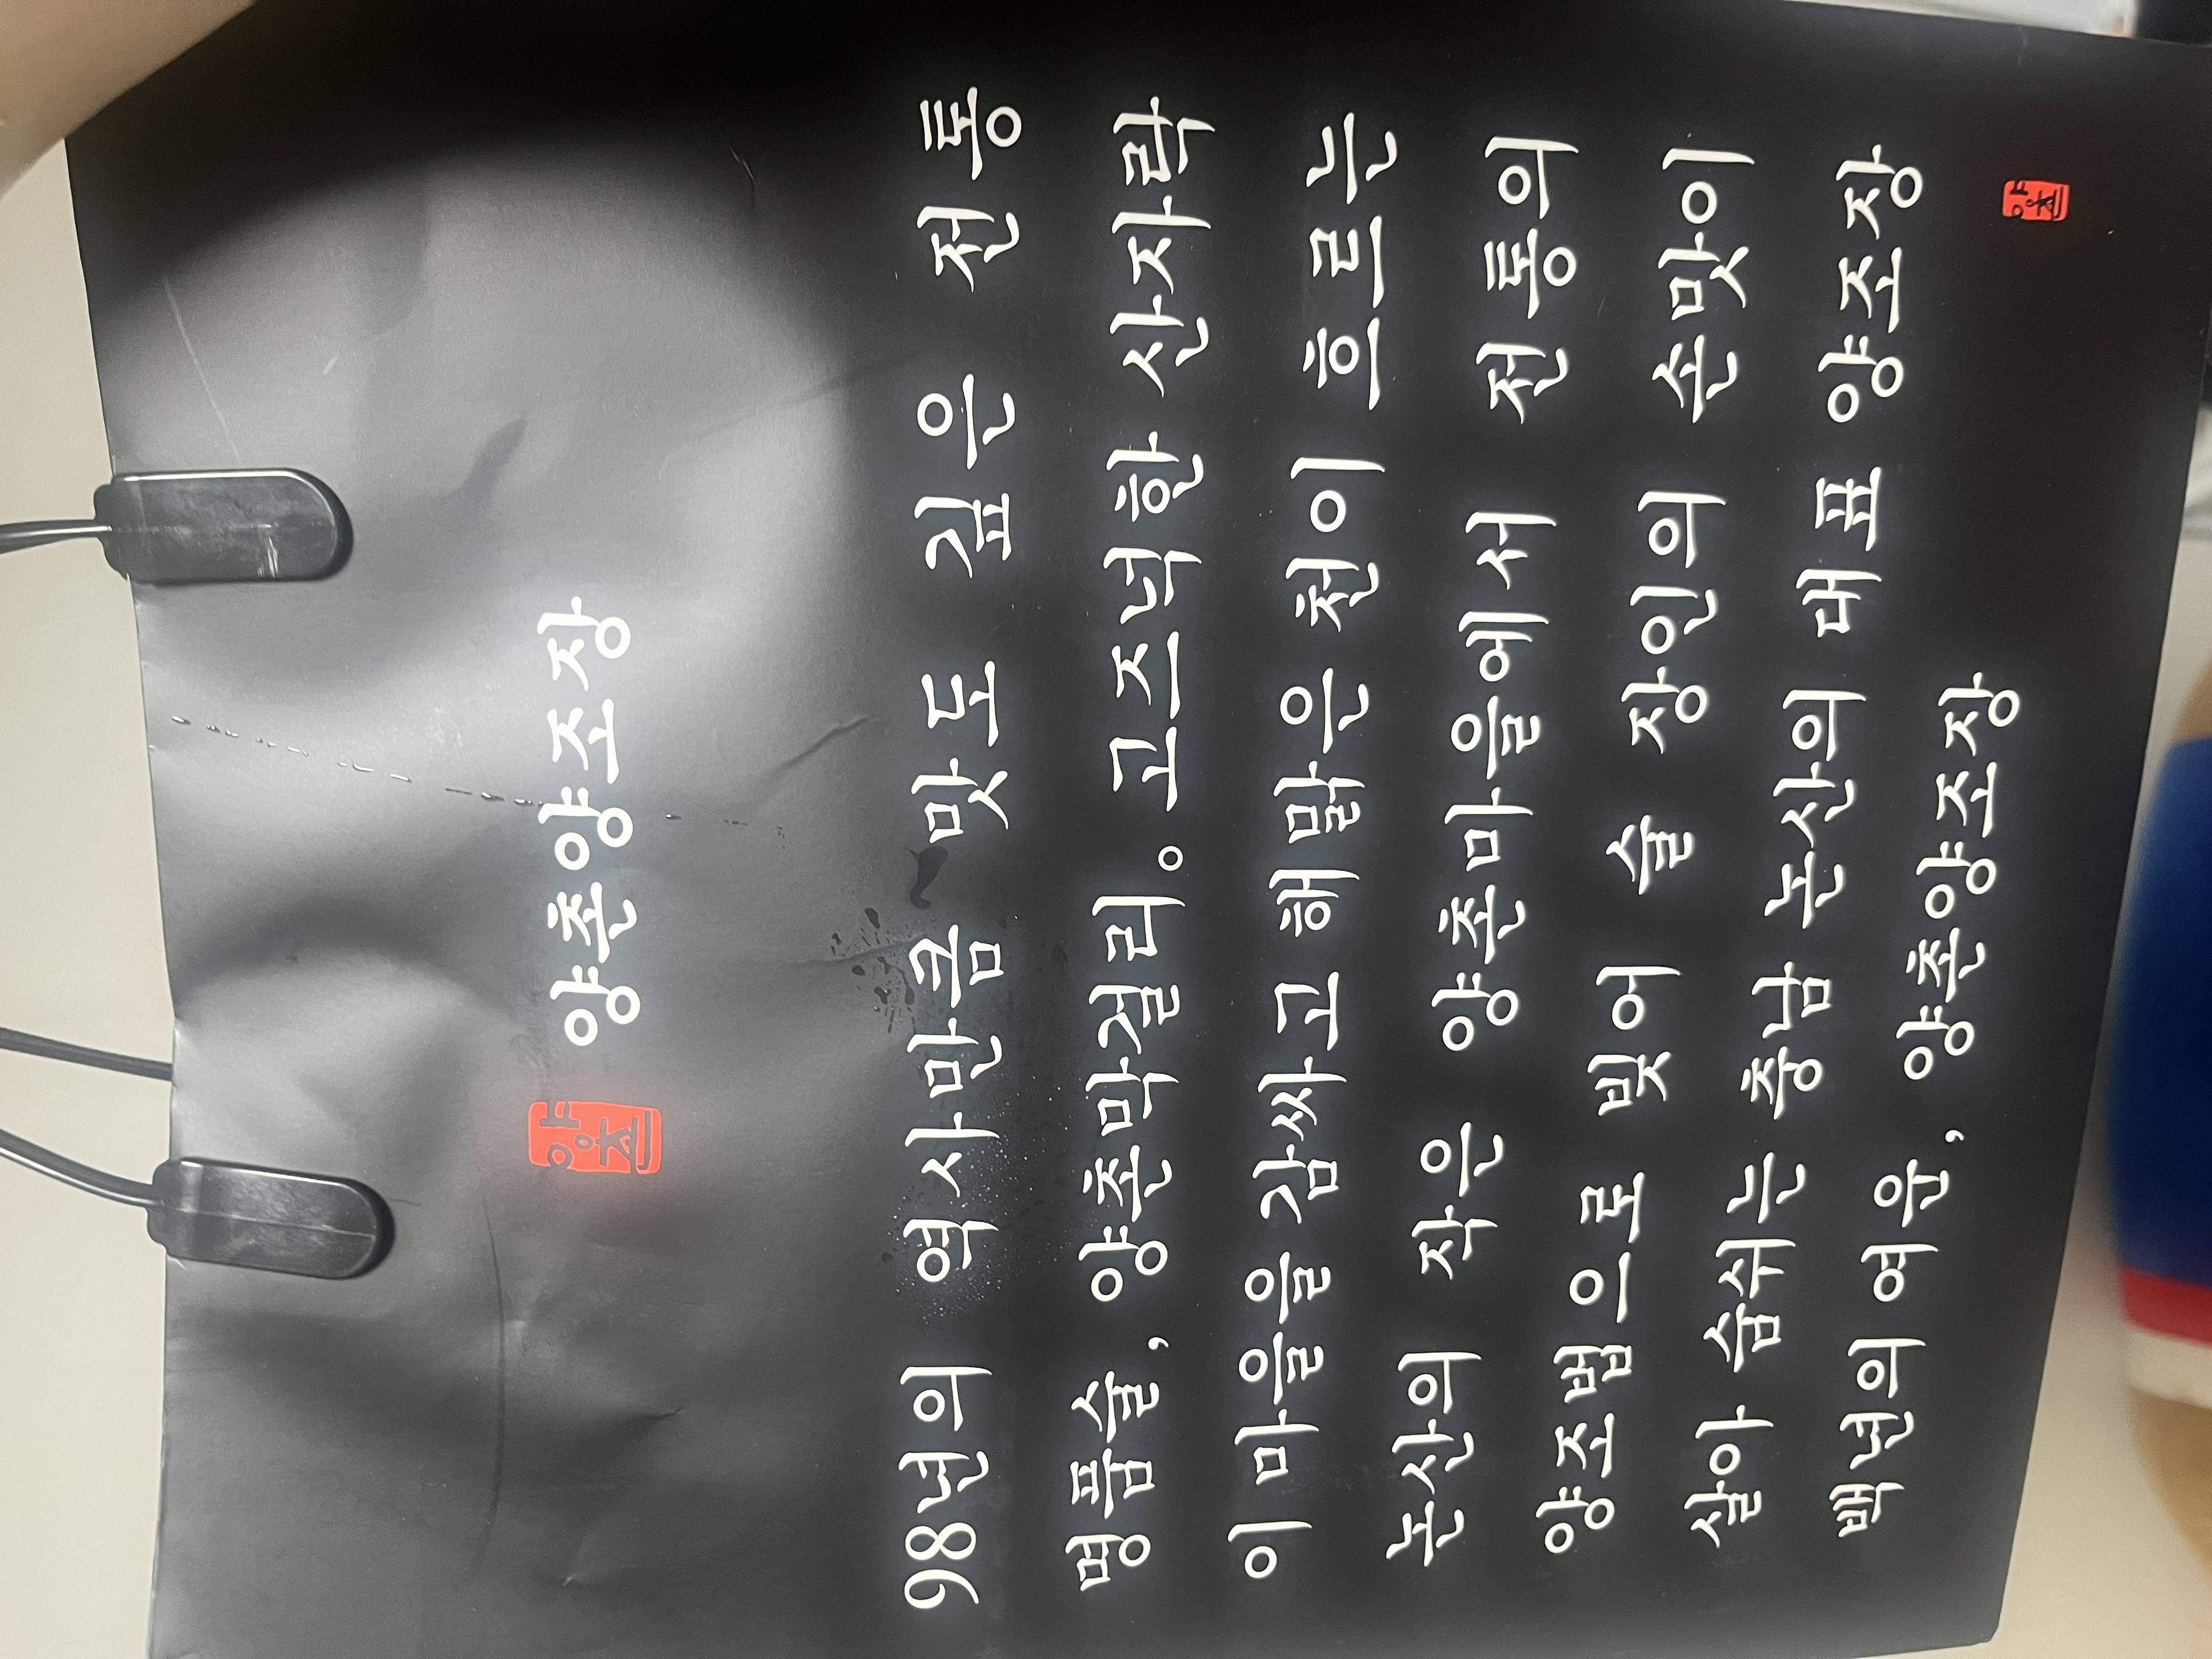 양촌양조장
98년의 역사만큼 맛도 깊은 전통
명품술, 양촌막걸리。고즈넉한 산자락
이 마을을 감싸고 해맑은 천이 흐르는
논산의 작은 양촌마을에서 전통의
양조법으로 빚어 술 장인의 손맛이
살아 숨쉬는 충남 논산의 대표 양조장
백년의 여운, 양촌양조장